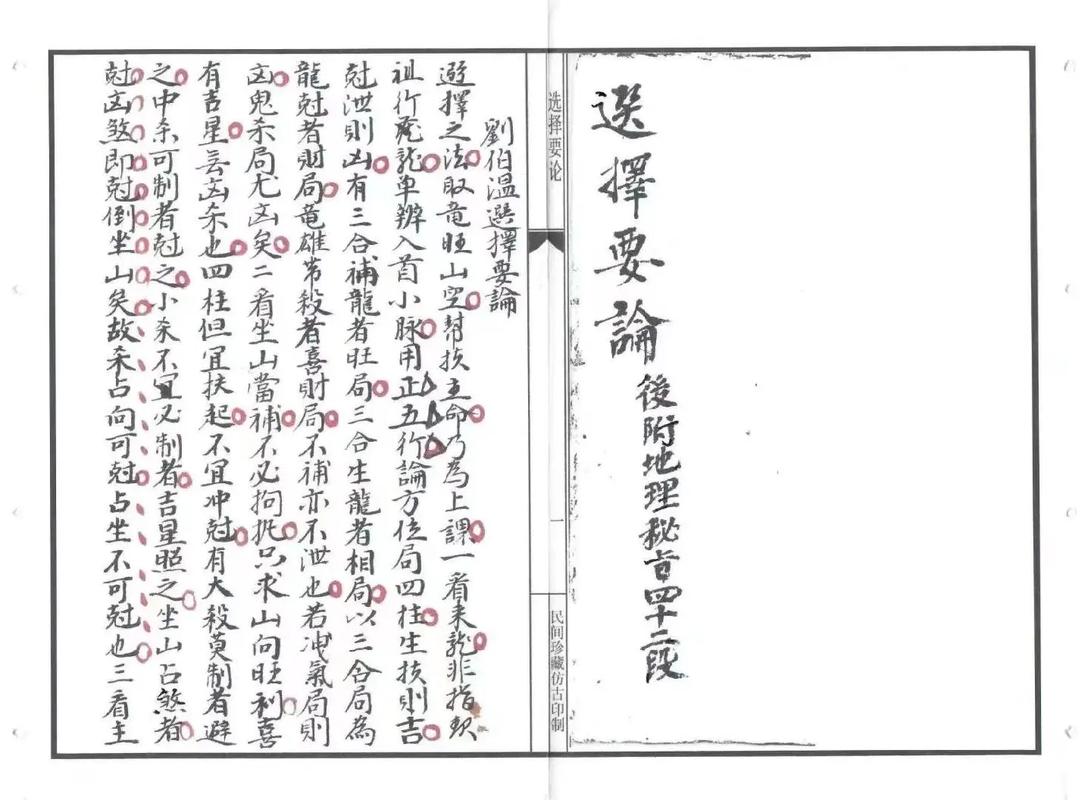 選擇要論 後附地理秘旨四十二段
选择要论
一
民间珍藏仿古印制
劉伯溫選擇要論
選擇之法取竜旺山空幫扶主命乃為上課一看来龍非指
祖行龍单辨入首小脉用正五行論方位局四柱生扶則吉
尅泄則凶有三合補龍者旺局三合生龍者相局以三合局為
龍尅者財局竜雄带殺者喜財局不補亦不泄也若洩氣局則
凶鬼杀局尤凶矣二看坐山當補不必拘扺只求山向旺利喜
有吉星無凶杀也四柱但宜扶起不宜冲尅有大殺莫制者避
之中杀可制者尅之小杀不宜必制者吉星照之坐山占煞者
尅凶煞即尅倒坐山矣故杀占向可尅占坐不可尅也三看主